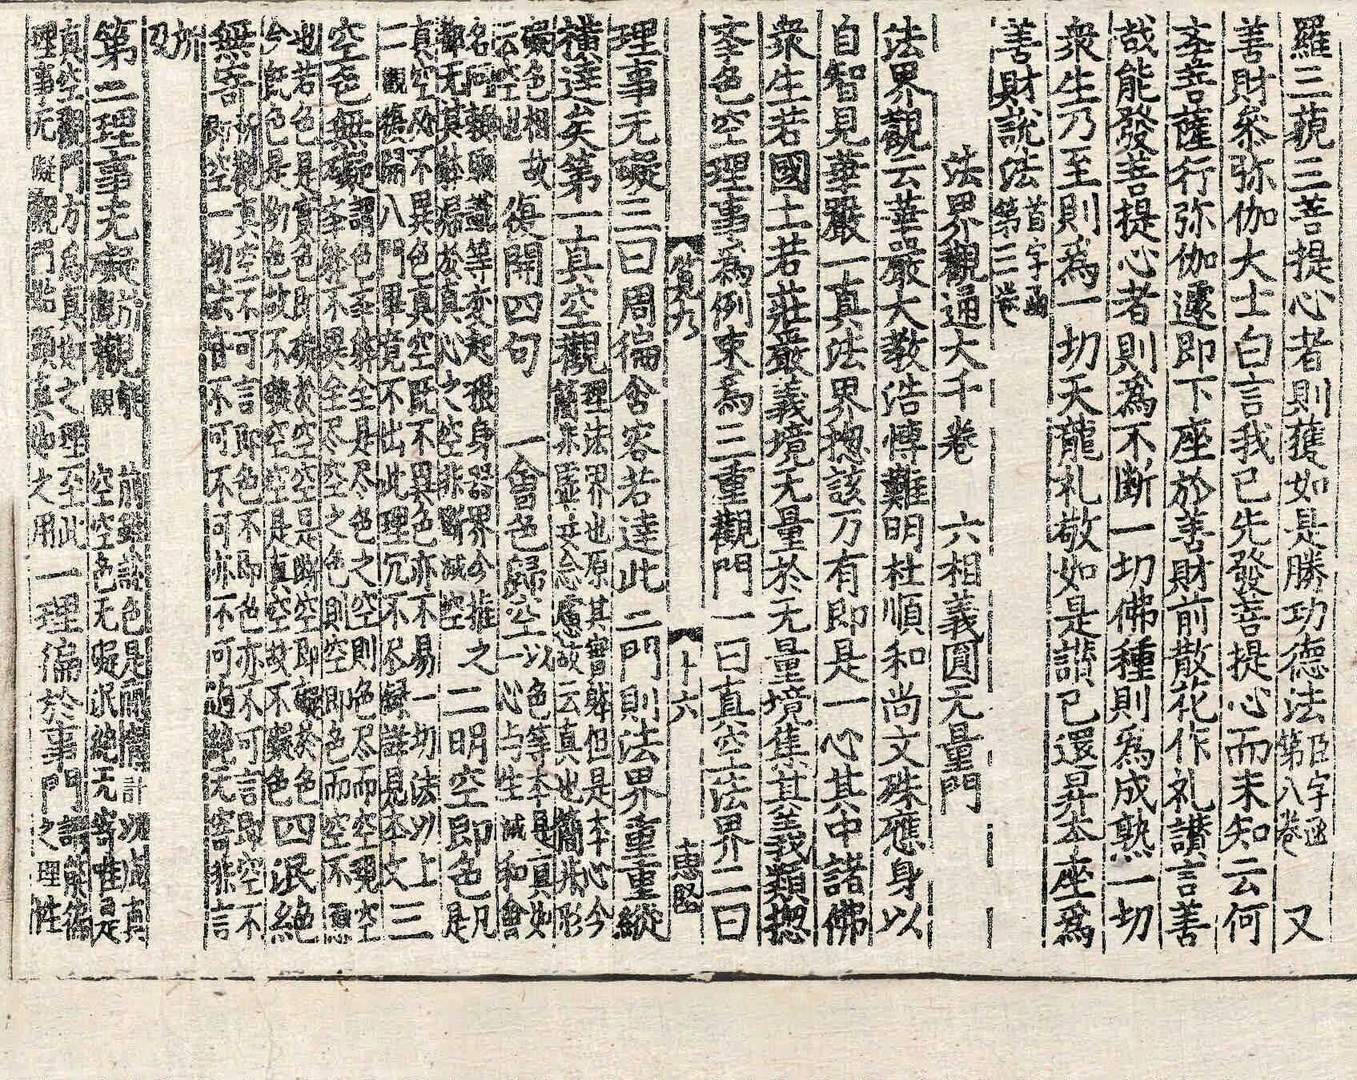 羅三藐三菩提心者則獲如是勝功德法臣字函第八卷 又
善財叅弥伽大士白言我已先發菩提心而未知云何
李菩薩行弥伽遽即下座於善財前散花作礼讃言善
哉能發菩提心者則爲不断一切佛種則爲成熟一切
衆生乃至則爲一切天龍礼敬如是讃已還昇本座爲
善財說法首字函第三卷
法界觀通大千卷 六相義圓无量門
法界觀云華嚴大教浩愽難明杜順和尚文殊應身以
自智見華嚴一真法界揔該万有即是一心其中諸佛
衆生若國土若莊嚴義境无量於无量境集其義類揔
李色空理事爲例束爲三重觀門一曰真空法界二曰
覧九 十六
理事无礙三曰周徧含容若達此三門則法界重重縱
橫達矣第一真空觀理法界也原其實躰但是本心今
簡非虛妄念慮故云真也簡非形
礙色相故云空也 復開四句 一會色歸空以色等本是真如
一心与生滅和會
名阿賴耶識等变起根身器界今推之
都无真躰歸於真心之空非断滅空 二明空即色是凡
真空必不異色真空既不異色亦不易一切法以上
二觀復開八門畢竟不出此理冗不尽録詳見本文 三
空色無礙謂色李躰全是尽色之空則色尽而空現空
李躰不異全尽空之色則空即色而空不
也若色是實色即礙於空空是断空即礙於色
今既色是幻色故不礙空空是真空故不礙色 四泯絶
無寄所觀真空不可言即色不即色亦不可言即空不
即空一切法皆不可不可亦不可逈絶无寄非言
所
及
第二理事无礙觀
前雖說色是
空空色无礙泯絶无寄唯是
真空觀門方爲真如之理至此
理事无礙觀門 真如之用 一理徧於事門